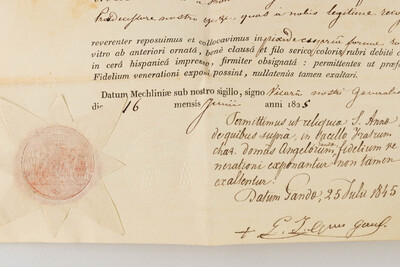 nostro quas à nobis legitime
reverenter reposuimus et collocavimus in
vitro ab anteriori ornatâ, bene clausâ et filo serico/coloris/rubri debitè
in cerâ hispanicâ impresso, firmiter obsignatâ : permittentes ut præf
Fidelium venerationi exponi possint, nullatenùs tamen exaltari.
Datum Mechliniæ sub nostro sigillo, signo Vicarii nostri Generalis
die 16 mensis Junii anni 1825
Permittimus ut reliquia S. Annæ
de quibus supra, in Sacello Fratrum
char. domûs Angelorum, fidelium ve-
nerationi exponantur non tamen
exaltentur.
Datum Gandæ, 25 Julii 1845
+